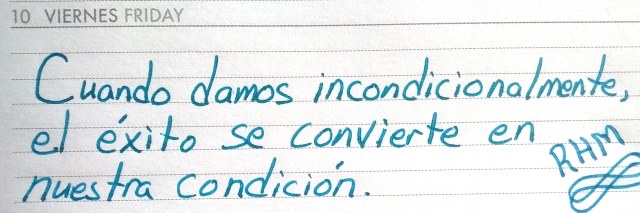 10 VIERNES FRIDAY
Cuando damos incondicionalmente,
el éxito se convierte en
nuestra condición.
RHM